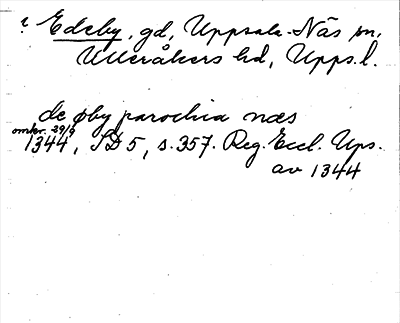 ? Edeby, gd, Uppsala-Näs sn,
Ulleråkers hd, Upps.l.
de øby parochia næs
omkr. 29/9
1344, SD 5, s. 357. Reg. Eccl. Ups.
av 1344